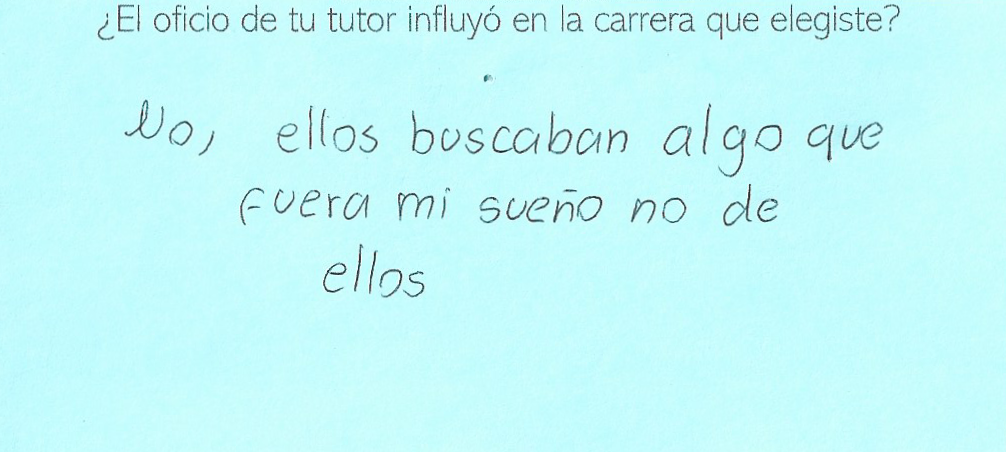 ¿El oficio de tu tutor influyó en la carrera que elegiste?
No, ellos buscaban algo que
fuera mi sueño no de
ellos